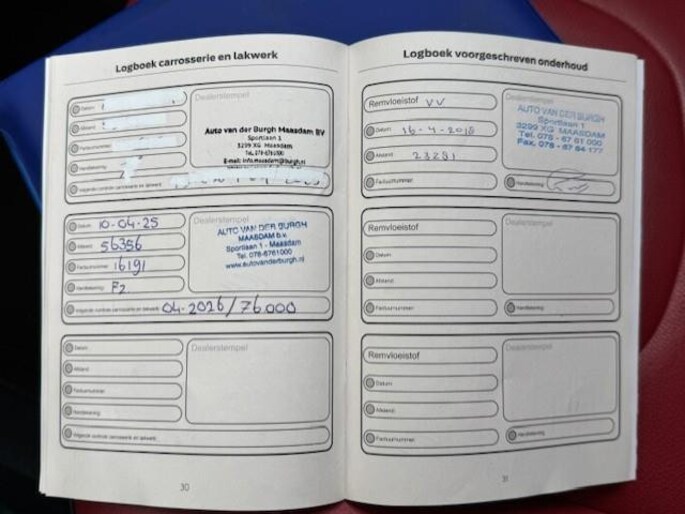 Logboek carrosserie en lakwerk
Dealerstempel
Datum
Afstand
Factuurnummer
Handtekening
Volgende controle carrosserie en lakwerk
Auto van der Burgh Maasdam BV
Sportlaan 1
3299 XG Maasdam
Tel. 078-6761000
Dealerstempel
Datum 10-04-25
Afstand 56356
Factuurnummer 16191
Handtekening
Volgende controle carrosserie en lakwerk 04-2026/76.000
AUTO VAN DER BURGH
MAASDAM b.v.
Sportlaan 1 - Maasdam
Tel. 078-6761000
www.autovanderburgh.nl
Dealerstempel
Datum
Afstand
Factuurnummer
Handtekening
Volgende controle carrosserie en lakwerk
30
Logboek voorgeschreven onderhoud
Remvloeistof VV
Datum 16-4-2018
Afstand 23281
Factuurnummer
Dealerstempel
AUTO VAN DER BURGH
Sportlaan 1
3299 XG MAASDAM
Tel. 078 - 67 61 000
Fax. 078 - 67 64 177
Handtekening
Remvloeistof
Datum
Afstand
Factuurnummer
Dealerstempel
Handtekening
Remvloeistof
Datum
Afstand
Factuurnummer
Dealerstempel
Handtekening
31